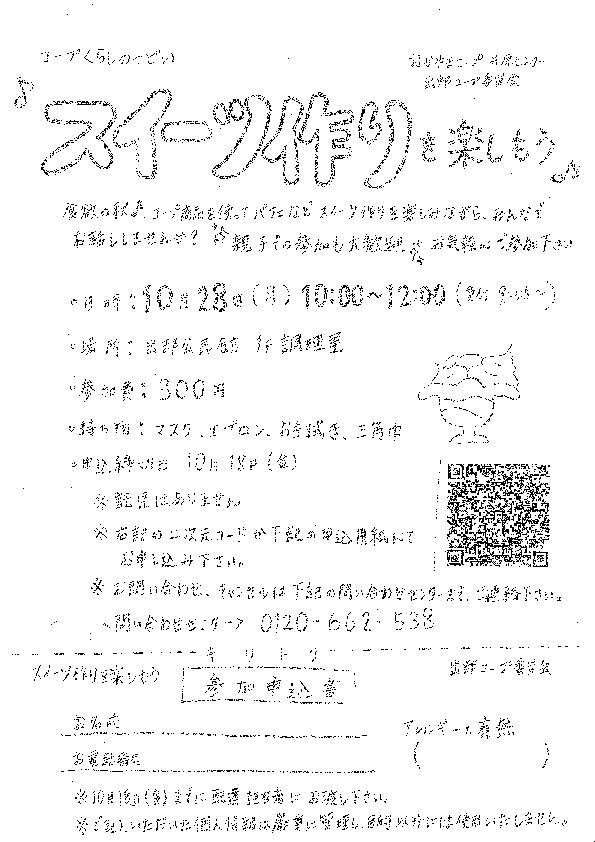 コープくらしのつどい
おかやまコープ 井原センター
出部コープ委員会
スイーツ作りを楽しもう
食欲の秋♪ コープ商品を使ってパフェなど スイーツ作りを楽しみながら、みんなで
お話ししませんか? 親子での参加も大歓迎 お気軽にご参加下さい
・日時:10月28日(月) 10:00~12:00 (受付 9:45~)
・場所:出部公民館 1F 調理室
・参加費:300円
・持ち物:マスク、エプロン、お手拭き、三角巾
・申込締切日 10月18日(金)
※託児はありません
※右記の二次元コードか下記の申込用紙にて
お申し込み下さい。
※お問い合わせ、キャンセルは下記の問い合わせセンターまで、ご連絡下さい。
<問い合わせセンター> 0120-662-538
キリトリ
スイーツ作りを楽しもう
出部コープ委員会
参加申込書
お名前
アレルギーの有無
( )
お電話番号
※10月18日(金)までに配達担当者にお渡し下さい。
※ご記入いただいた個人情報は厳重に管理し、目的以外には使用いたしません。